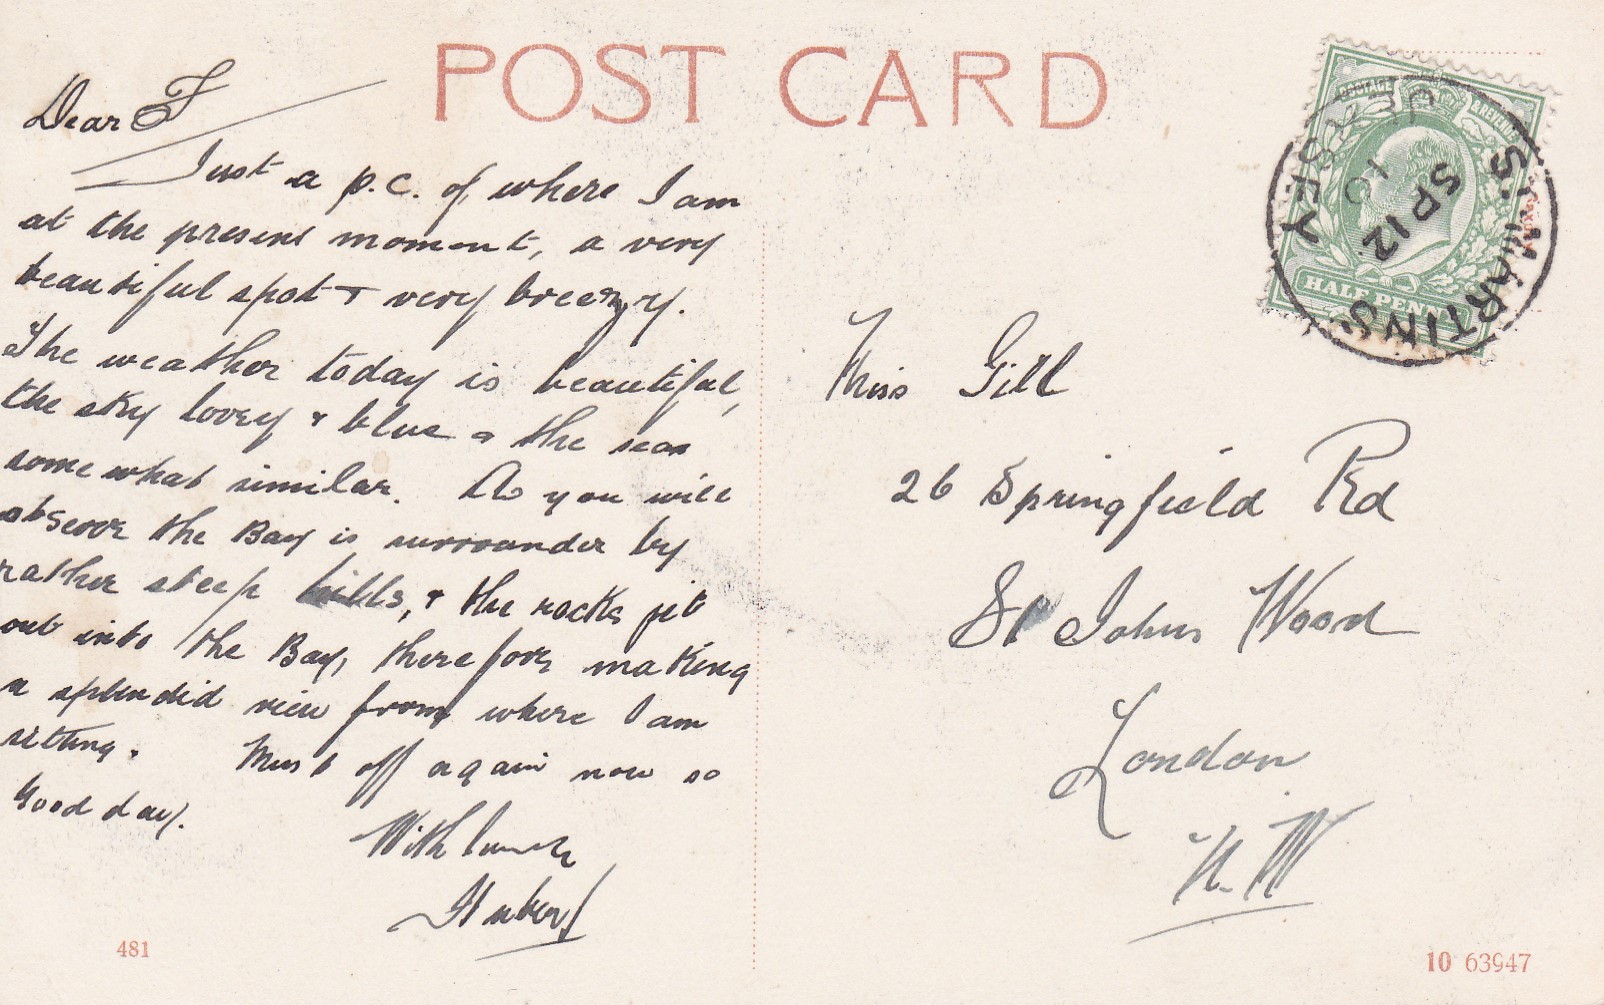 POST CARD
Dear F
Just a p.c. of where I am
at the present moment, a very
beautiful spot + very breezy.
The weather today is beautiful,
the sky lovey + blue + the sea
somewhat similar. As you will
observe the Bay is surrounder by
rather steep hills, + the rocks jet
out into the Bay, therefore making
a splendid view from where I am
sitting. Must off again now so
Good day.
With
Hubert
481
POSTAGE & REVENUE
HALF PENNY
ST. MARTINS
JERSEY
SP 12
10
Miss Gill
26 Springfield Rd
St Johns Wood
London
N.W
10 63947